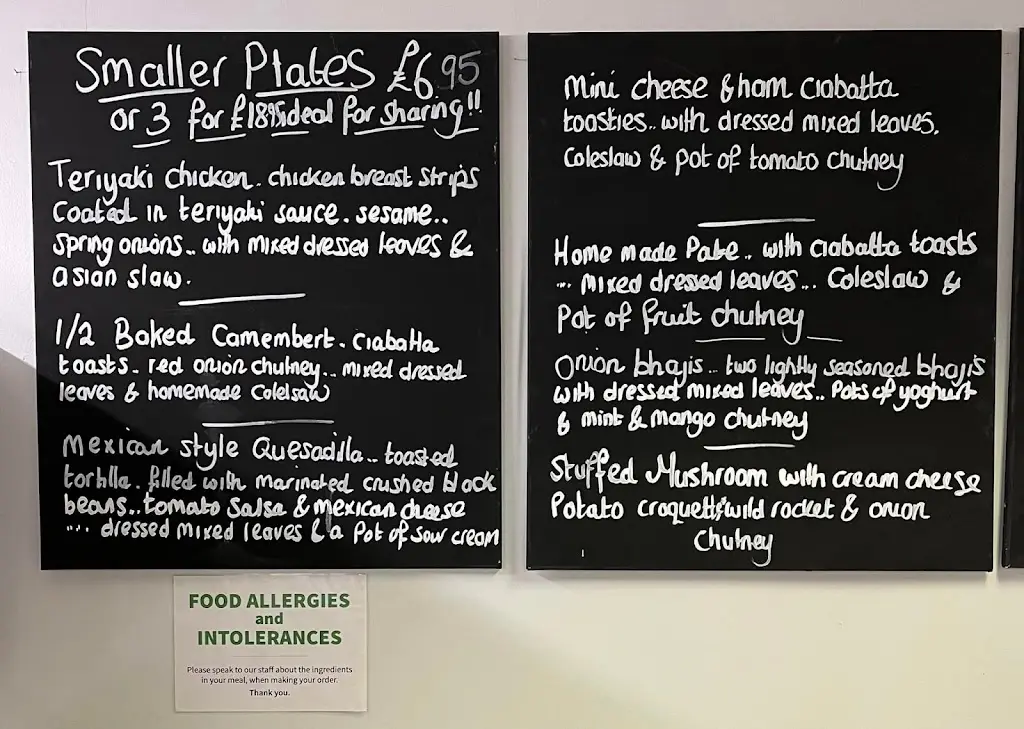 Smaller Plates £6.95
or 3 for £18.95 ideal for sharing!!
Teriyaki chicken. chicken breast strips
coated in teriyaki sauce. sesame..
spring onions.. with mixed dressed leaves &
asian slaw.
1/2 Baked Camembert. ciabatta
toasts. red onion chutney... mixed dressed
leaves & homemade Colelsaw
Mexican style Quesadilla.. toasted
tortilla. filled with marinated crushed black
beans..tomato Salsa & mexican cheese
... dressed mixed leaves & a Pot of sour cream
Mini cheese & ham Ciabatta
toasties.. with dressed mixed leaves.
Coleslaw & pot of tomato chutney
Home made Pate.. with ciabatta toasts
... mixed dressed leaves... Coleslaw &
Pot of fruit chutney
Onion bhajis.. two lightly seasoned bhajis
with dressed mixed leaves.. Pots of yoghurt
& mint & mango chutney
Stuffed Mushroom with cream cheese
Potato croquetts wild rocket & onion
Chutney
FOOD ALLERGIES
and
INTOLERANCES
Please speak to our staff about the ingredients
in your meal, when making your order.
Thank you.